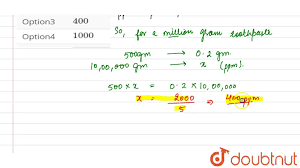 Option3 400
Option4 1000
So, for a million gram toothpaste
500gm → 0.2 gm.
10,00,000 gm → x (ppm).
500 × x = 0.2 × 10,00,000
x = 2000/5 ⇒ 400 ppm
doubtnut